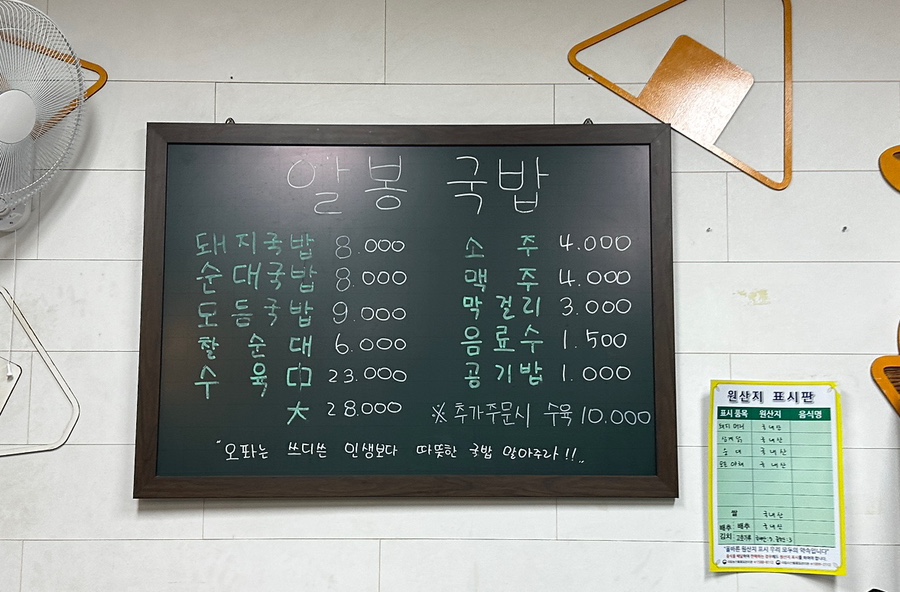 알봉 국밥
돼지국밥 8.000
순대국밥 8.000
모듬국밥 9.000
찰순대 6.000
수육 中 23.000
大 28.000
소주 4.000
맥주 4.000
막걸리 3.000
음료수 1.500
공기밥 1.000
※추가주문시 수육 10.000
"오파는 쓰디쓴 인생보다 따뜻한 국밥 말아주라!!„
원산지 표시판
표시품목 원산지 음식명
돼지 머리 국내산
국내산
순대 국내산
국내산
쌀 국내산
배추 배추 국내산
김치 고춧가루
"올바른 원산지 표시 우리 모두의 약속입니다"